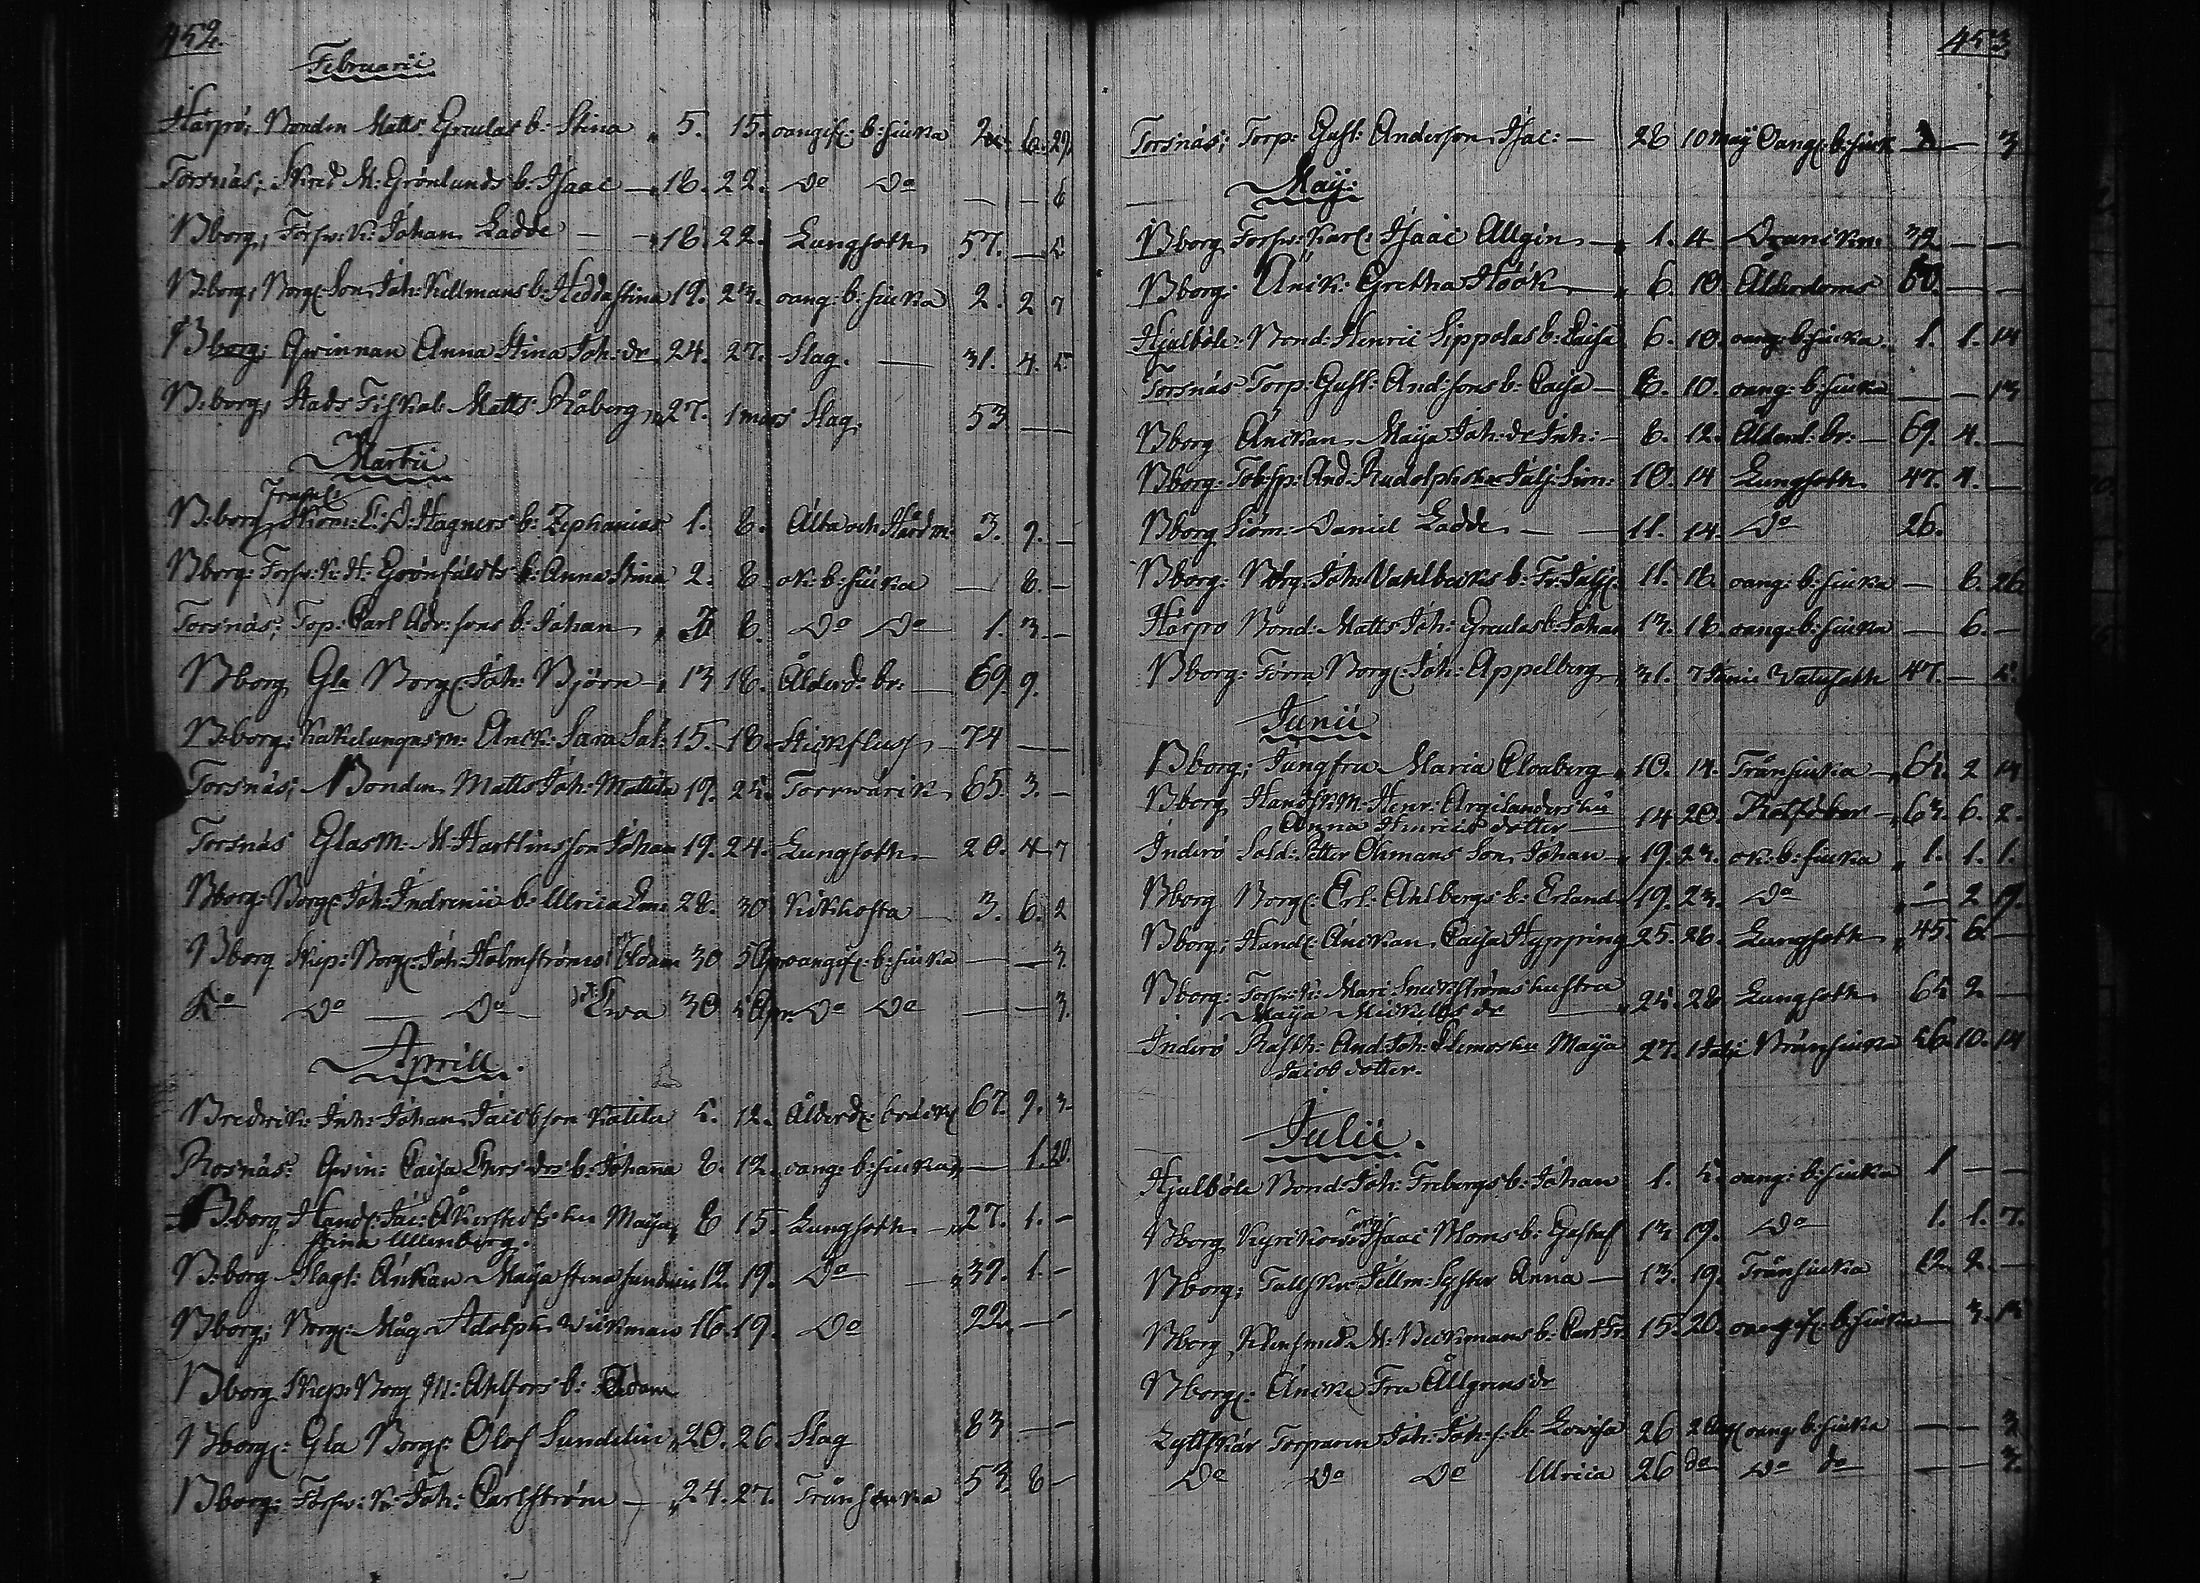 452.
Februarii
Harpö, Bonden Matts Greulas b: Stina 5. 15. oangifs: b: siuka 2. 6. 29.
Torsnäs, Skred M: Grönlunds b: Isaac 18. 22. Do Do — — 6
Bborg, Försw: K: Johan Ladde — 18. 22. Lungsoth 57. — 5
B:borg, Borg: Son Joh: Kellmans b: Heddastina 19. 23. oang: b: siuka 2. 2 7
Bborg; Qwinnan Anna Stina Joh: dr 24. 27. Slag. — 31. 4. 5.
B:borg, Stads Fiskal Matts Råberg 27. 1 mars Slag. 53 — —
Martii
B:borg, Skom: E: D: Hagners b: Zephanias 1. 8. Älta och Hård m: 3. 9. —
Bborg: Försw: K: H: Grönfäldts b: Anna Stina 2. 8. ok: b: siuka — 8. —
Torsnäs, Torp: Carl Adr: sons b: Johan 8. Do Do 1. 3. —
Bborg Gla Borg: Joh: Björn 13 18. Ålderd: br: — 69. 9.
B:borg: Kakelungnsm: Änck: Sara Sal: 15. 18. Stickfluss 74 — —
Torsnäs; Bonden Matts Joh: Mattila 19. 25. Torrwärck 65. 3. —
Torsnäs Glasm: M: Hartlins son Johan 19. 24. Lungsoth 20. 4 7
Bborg: Borg: Joh: Indrenii b: Ulrica 28. 30 Kikhosta 3. 6. 2
Bborg Skep: Borg: Joh: Holmströms Adam 30 5 Apr oangifs: b: siuka — — 3.
Do Do — Do — Ewa 30 5 Apr. Do Do — — 3.
Aprill.
Bredwik: Inh: Johan Jacobson Katila 5. 12. Ålderds: bräck 67. 9. 3.
Rosnäs: Qwin: Caisa Ehrs drs b: Johanna 8. 12. oang: b: siuka — 1. 20.
Bborg Hand: Jac: Åkerstedts hu Maija 8 15. Lungsoth — 27. 1. —
Stina Ullenberg.
B:borg Slagt: Änkan Maija Stina Sundwin 12. 19. Do — 39. 1. —
Bborg; Borg: Måg Adolph Wiikman 16. 19. Do 22. —
Bborg Skep: Borg M: Ahlfors b: Adam
Bborg: Gla Borg: Olof Sundelin 20. 26. Slag 83 — —
Bborg: Försw: K: Joh: Carlström — 24. 27. Trånsiuka 53 8 —
453
Torsnäs; Torp: Gust: Anderson Isac: — 28 10 Maij Oang: b: siuk — 3
Maij:
Bborg Försw: Karl: Isaac Allgin — 1. 4 Drunckn: 32 — —
Bborg: Änck: Gretha Höök 6. 10 Ålderdoms 60. — —
Hjulböle: Bond: Henric Sippolas b: Caisa 6. 10 oang: b: siuka. 1. 1. 14
Torsnäs Torp: Gust: And: sons b: Caisa — 8. 10. oang: b: siuka — — 13
Bborg Änckan Maija Joh: dr Inh: — 8. 12. Ålderd: br: — 69. 4. —
Bborg: And: Rudolphs 10. 14 Lungsoth 47. 4. —
Bborg Siöm: Daniel Ladde — 11. 14. Do 26.
Bborg: Borg: Joh: Vahlbecks b: Fr: 11. 18. oang: b: siuka — 6. 26
Harpö Bond: Matts Joh: Greulas b: Johan 13. 18. oang: b: siuka — 6. —
Bborg: Förra Borg: Joh: Appelberg 31. 7 Junii Watusoth 47. — 5.
Junii
Bborg; Jungfru Maria Cloaberg 10. 14. Trånsiuka — 2 14
Bborg Handskm: Henr: Argilanders hu 14 20. 63. 6. 2.
Anna Henrics dotter —
Inderö Sold: Petter Öhmans Son Johan 19. 23. ok: b: siuka 1. 1. 1.
Bborg Borg: Erl: Ahlbergs b: Erland 19. 23. Do — 2 19.
Bborg; Handl: Änckan Caisa Hyppring 25. 28. Lungsoth 45. 6. —
Bborg: Försw: K: Mari: hustru 25. 28. Lungsoth 65 2 —
Maija Mickels dr
Inderö And: Joh: hu Maija 27. 1 Julii Bränsiuka 56. 10. 14
Jacob dotter.
Julii.
Hjulböle Bond: Joh: Frebergs b: Johan 1. 5. oang: b: siuka 1 — —
Bborg Kyrckow: Isaac Bloms b: Gustaf 13 19. Do 1. 1. 7.
Bborg; Syster Anna — 13. 19. Trånsiuka 12. 2. —
Bborg Klensmed M: Beckmans b: Carl Fr: 15. 20. oangifs: b: siuka — 3. 13
Bborg: Äncke Fru Ållgrens dr
Lyttskär Torparen Joh: Joh: s: b: Lowisa 26 28 oang: b: siuka — — 3
Do Do Do Ulrica 26 do Do do — — 3.